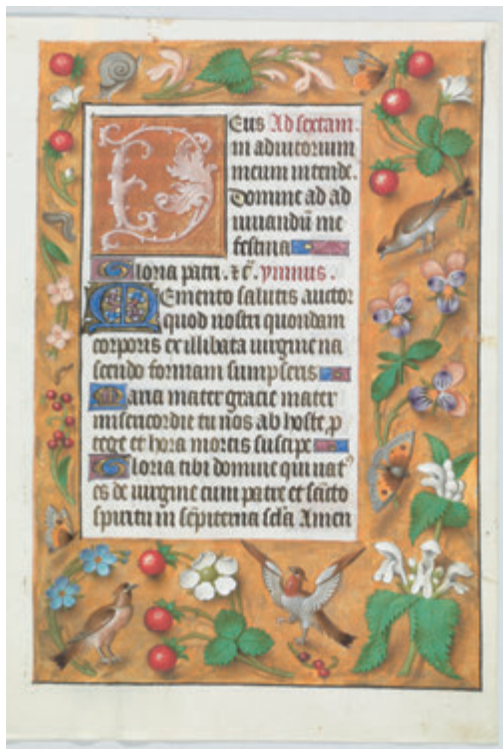 Deus Ad sextam.
in adiutorium
meum intende.
Domine ad ad
iuuandū me
festina
Gloria patri. ꝛ cͣ. ymnus.
Memento salutis auctor
quod nostri quondam
corporis ex illibata uirgine na
scendo formam sumpseris
Maria mater gracie mater
misericordie tu nos ab hoste ꝓ
tege et hora mortis suscipe
Gloria tibi domine qui natꝰ
es de uirgine cum patre et sancto
spiritu in sēpiterna sc̄la Amen